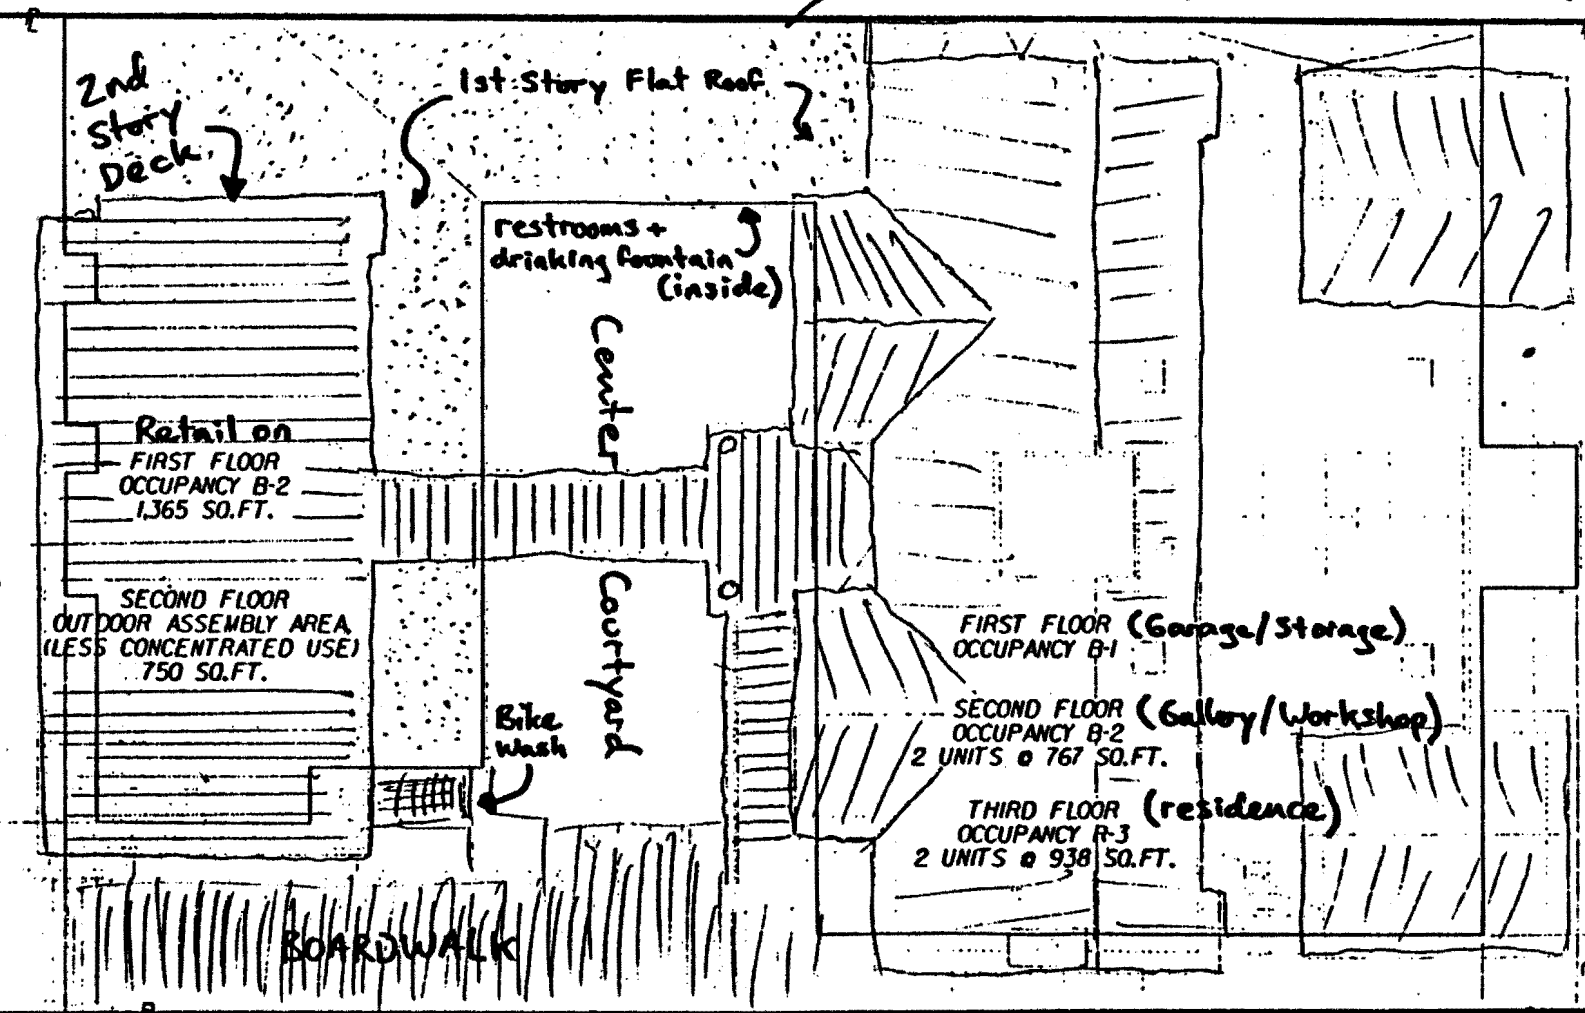 2nd
Story
Deck
1st Story Flat Roof
restrooms +
drinking fountain
(inside)
Center
Courtyard
Retail on
FIRST FLOOR
OCCUPANCY B-2
1,365 SQ.FT.
SECOND FLOOR
OUTDOOR ASSEMBLY AREA
(LESS CONCENTRATED USE)
750 SQ.FT.
Bike
Wash
BOARDWALK
FIRST FLOOR (Garage/Storage)
OCCUPANCY B-1
SECOND FLOOR (Gallery/Workshop)
OCCUPANCY B-2
2 UNITS @ 767 SQ.FT.
THIRD FLOOR (residence)
OCCUPANCY R-3
2 UNITS @ 938 SQ.FT.